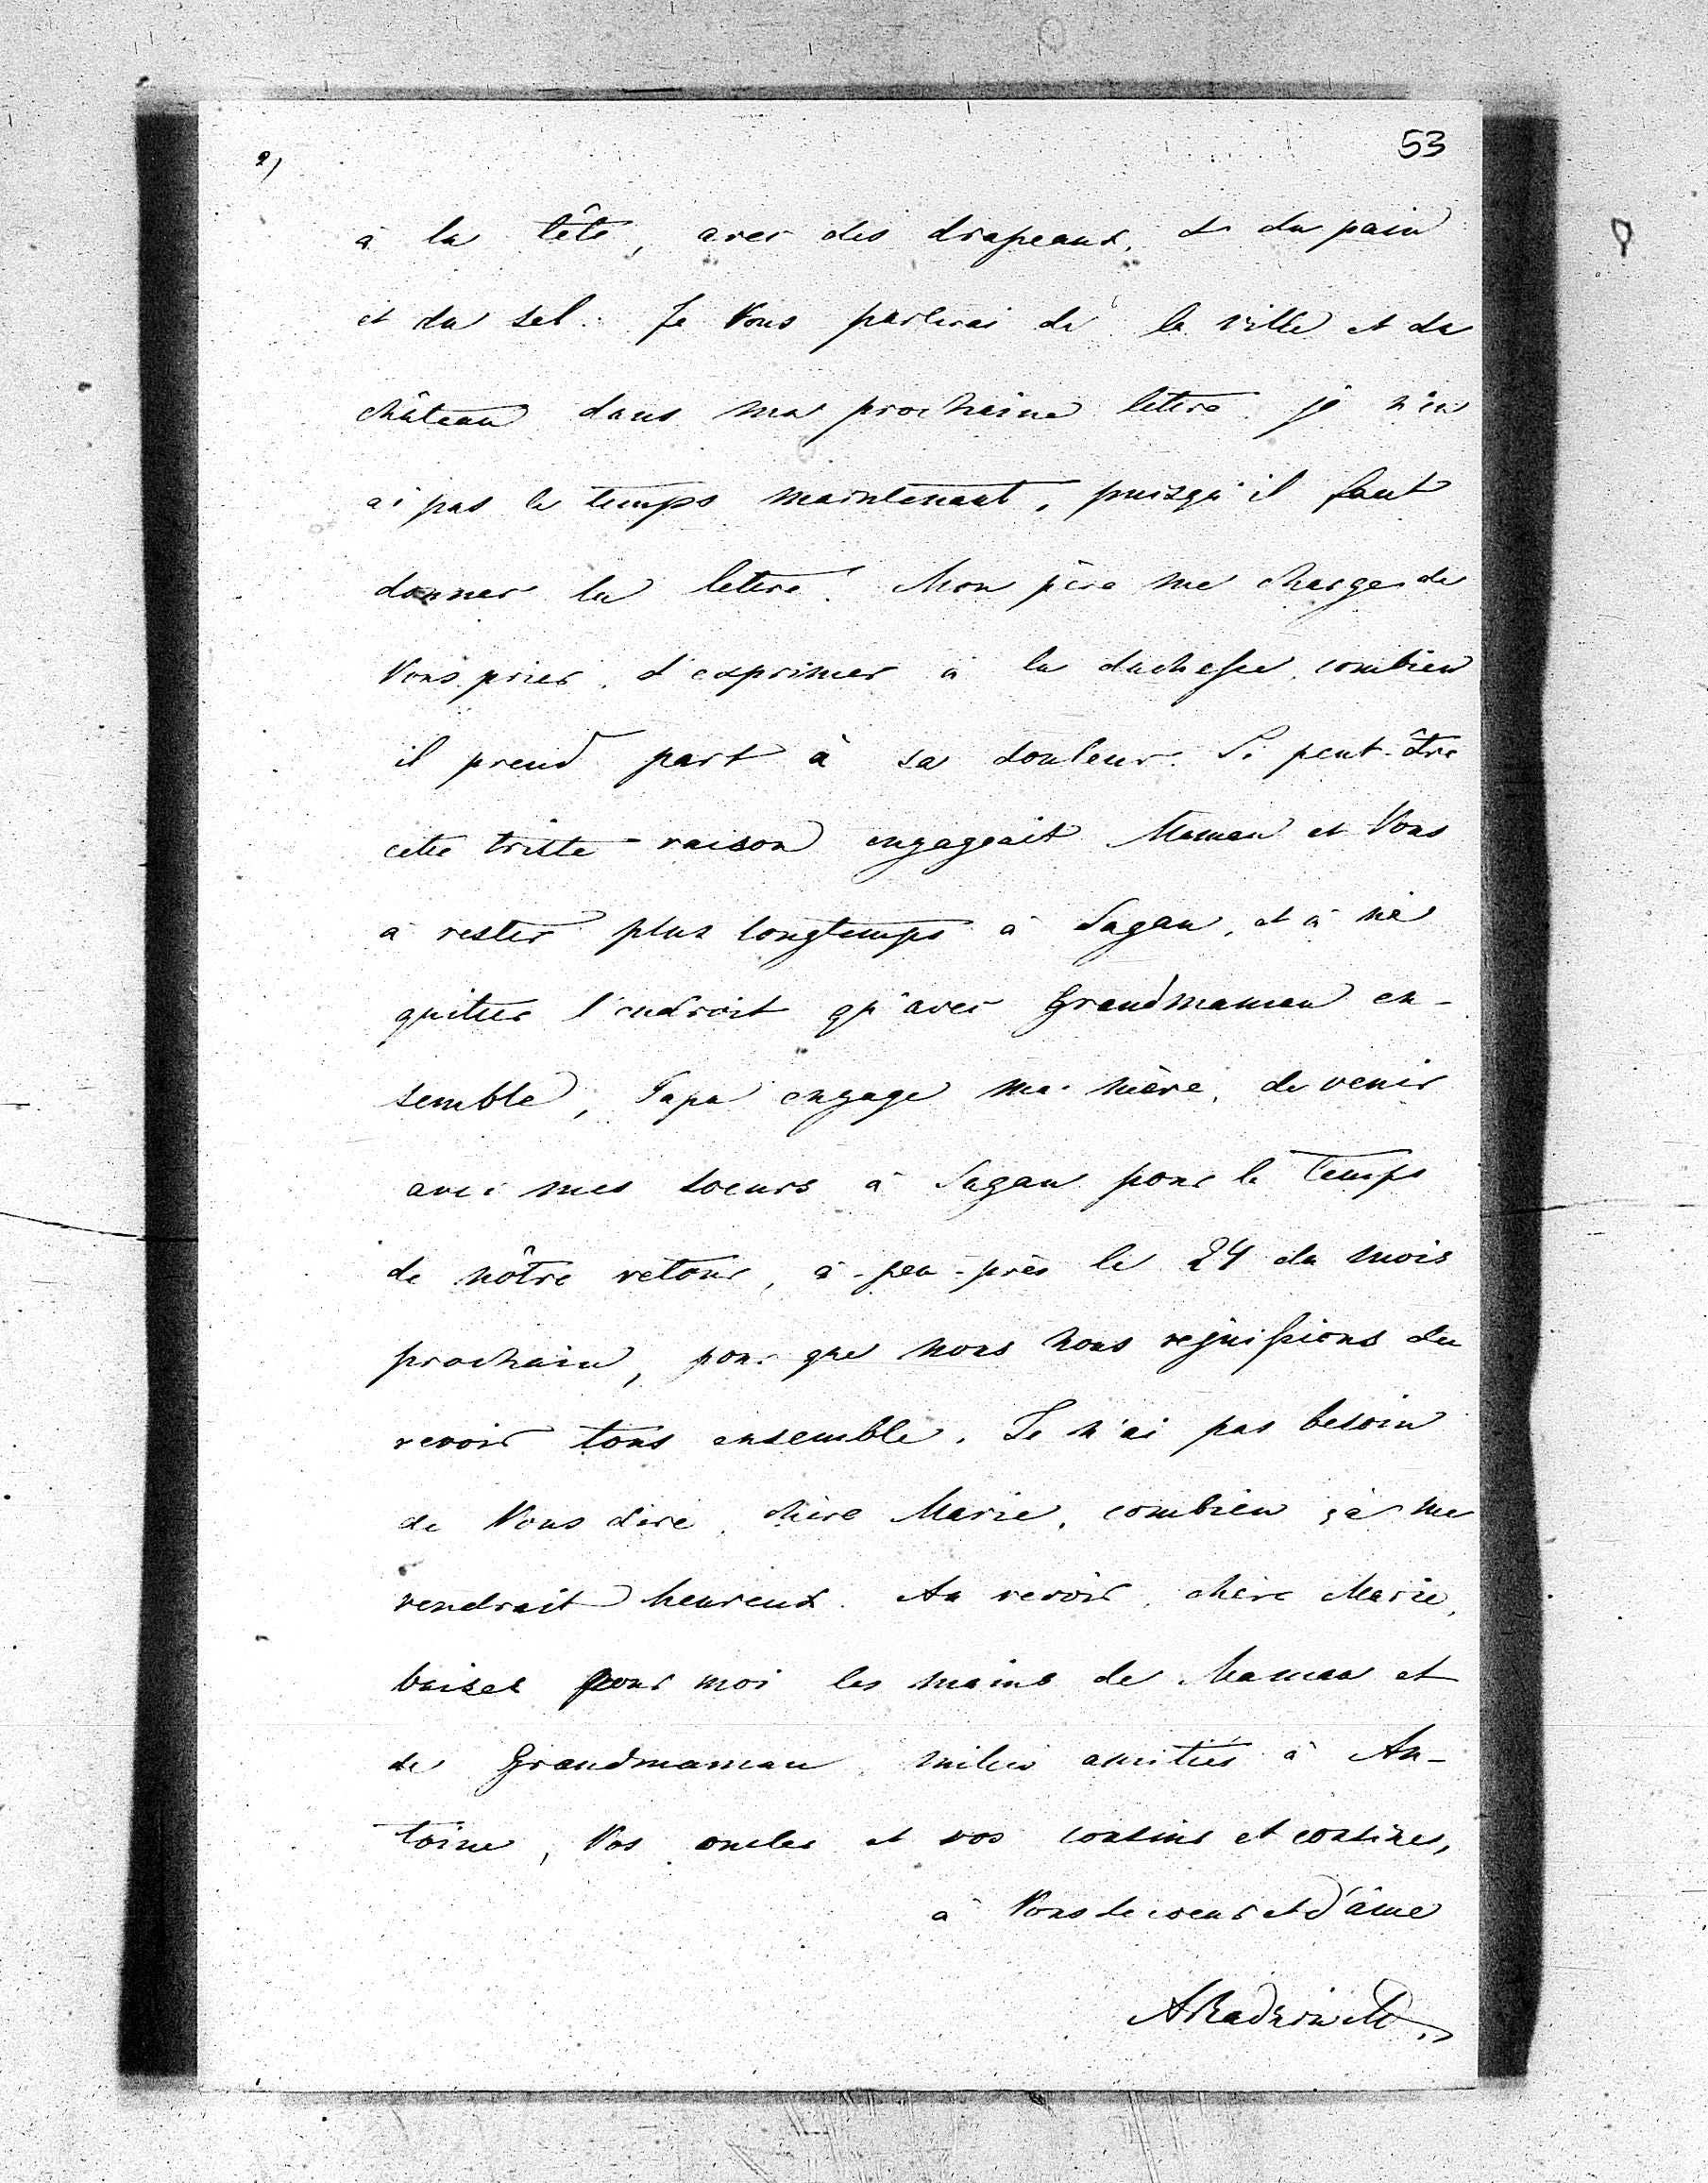 2)
53
à la tête, avec des drapeaux, et du pain
et du sel. Je Vous parlerai de la ville et du
château dans ma prochaine lettre. je n'en
ai pas le temps maintenant, puisqu'il faut
donner la lettre. Mon père me charge de
Vous prier, d'exprimer à la duchesse, combien
il prend part à sa douleur. Si peut-être
cette triste raison engageait Maman et Vous
à rester plus longtemps à Sagan, et à ne
quitter l'endroit qu'avec Grandmaman en-
semble, Papa engage ma mère, de venir
avec mes soeurs à Sagan pour le temps
de nôtre retour, à-peu-près le 24 du mois
prochain, pour que nous nous rejouissions du
revoir tous ensemble. Je n'ai pas besoin
de Vous dire, chère Marie, combien çà me
rendrait heureux. Au revoir, chère Marie,
baisez pour moi les mains de Maman et
de Grandmaman, milles amitiés à An-
toine, Vos oncles et vos cousins et cousines,
à Vous de coeur et d'âme
ARadziwill.